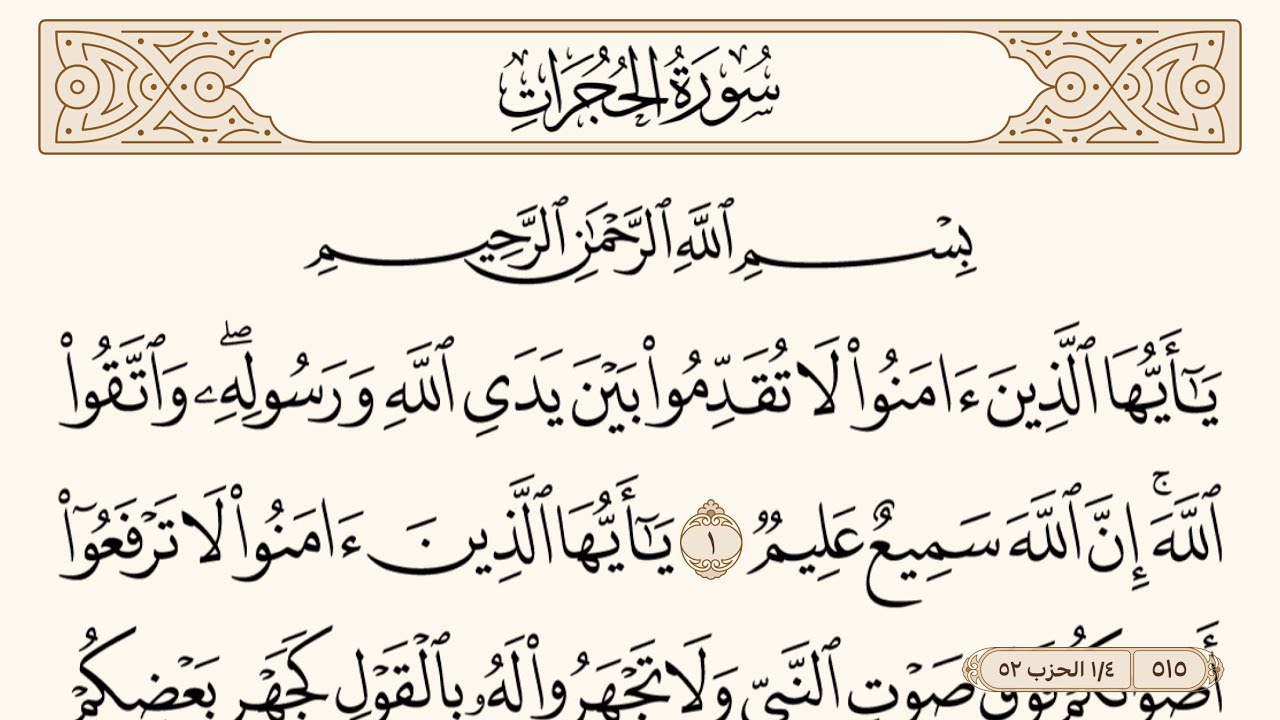 سُورَةُ الْحُجُرَاتِ
بِسْمِ ٱللَّهِ ٱلرَّحْمَٰنِ ٱلرَّحِيمِ
يَٰٓأَيُّهَا ٱلَّذِينَ ءَامَنُوا۟ لَا تُقَدِّمُوا۟ بَيْنَ يَدَىِ ٱللَّهِ وَرَسُولِهِۦ ۖ وَٱتَّقُوا۟
ٱللَّهَ ۚ إِنَّ ٱللَّهَ سَمِيعٌ عَلِيمٌ ١ يَٰٓأَيُّهَا ٱلَّذِينَ ءَامَنُوا۟ لَا تَرْفَعُوٓا۟
أَصْوَٰتَكُمْ فَوْقَ صَوْتِ ٱلنَّبِىِّ وَلَا تَجْهَرُوا۟ لَهُۥ بِٱلْقَوْلِ كَجَهْرِ بَعْضِكُمْ
٥١٥ ١/٤ الحزب ٥٢